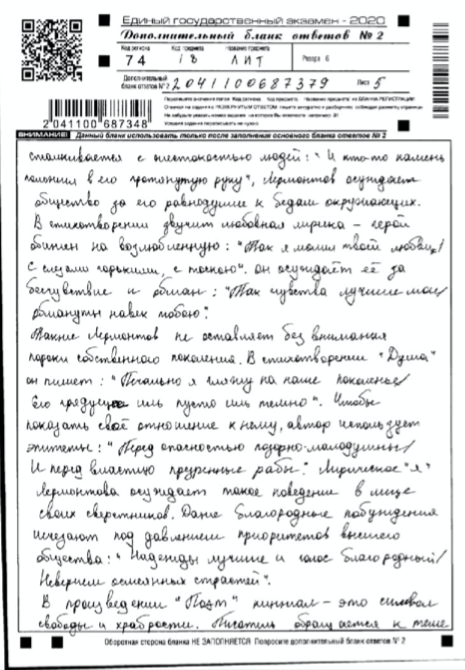 Единый государственный экзамен - 2020
Дополнительный бланк ответов № 2
Код региона Код предмета Название предмета
74 18 ЛИТ Резерв 6
Дополнительный
бланк ответов № 2 2041100687379 Лист 5
2 041100 687348
ВНИМАНИЕ! Данный бланк использовать только после заполнения основного бланка ответов № 2
сталкивается с жестокостью людей: "И кто-то камень
положил в его протянутую руку", Лермонтов осуждает
общество за его равнодушие к бедам окружающих.
В стихотворении звучит любовная лирика – герой
обижен на возлюбленную: "Так я молил твоей любви/
С слезами горькими, с тоскою". Он осуждает её за
бесчувствие и обман: "Так чувства лучшие мои/
обмануты навек тобою".
Также Лермонтов не оставляет без внимания
пороки собственного поколения. В стихотворении "Дума"
он пишет: "Печально я гляжу на наше поколенье/
Его грядущее иль пусто иль темно". Чтобы
показать своё отношение к нему, автор использует
эпитеты: "Перед опасностью позорно-малодушны/
И перед властию презренные рабы". Лирическое "я"
Лермонтова осуждает такое поведение в лице
своих сверстников. Даже благородные побуждения
исчезают под давлением приоритетов высшего
общества: "Надежды лучшие и голос благородный/
Неверием осмеянных страстей".
В произведении "Поэт" кинжал – это символ
свободы и храбрости. Писатель обращается к теме
Оборотная сторона бланка НЕ ЗАПОЛНЯЕТСЯ Попросите дополнительный бланк ответов № 2